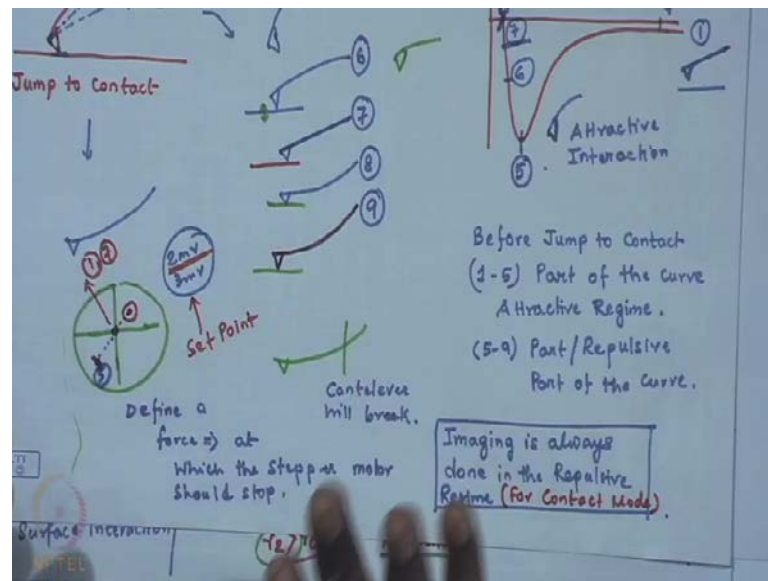 Jump to Contact
6
7
8
9
1
7
6
5
Attractive
Interaction
2mV
3mV
Set Point
1 2
Define a
force => at
which the stepper motor
should stop.
Cantelever
will break.
Before Jump to Contact
(1-5) Part of the curve
Attractive Regime.
(5-9) Part/Repulsive
Part of the curve.
Imaging is always
done in the Repulsive
Regime (For Contact Mode).
Surface Interaction
NPTEL